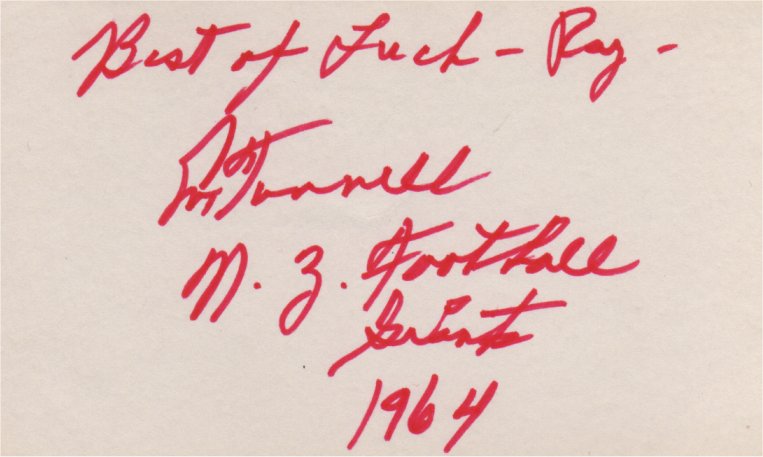 Best of Luck - Ray -
Em Tunnell
N. Y. Football
Giants
1964